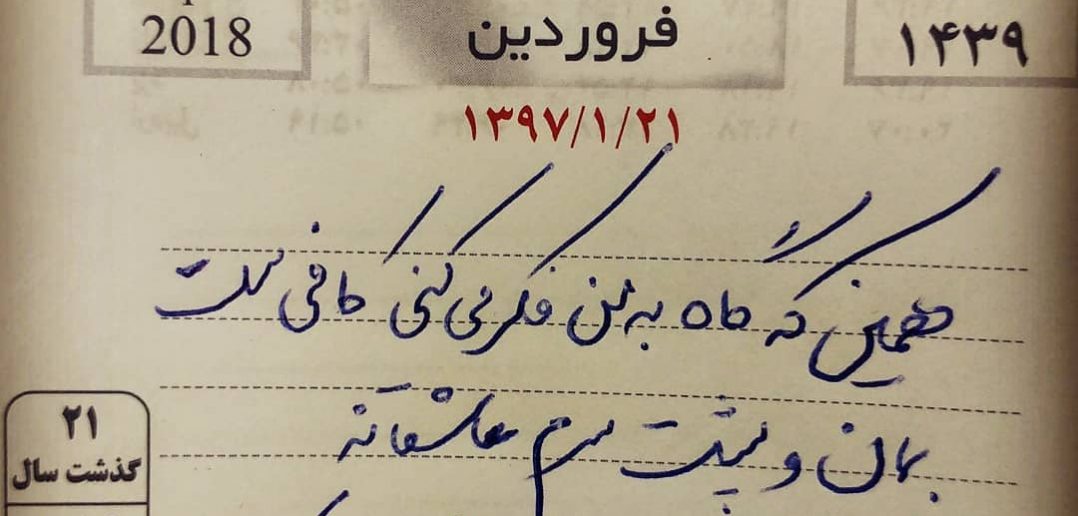 2018
فروردین
۱۴۳۹
۱۳۹۷/۱/۲۱
همین که گاه به من فکر می کنی کافی ست
بمان و پشت سرم عاشقانه
۲۱
گذشت سال